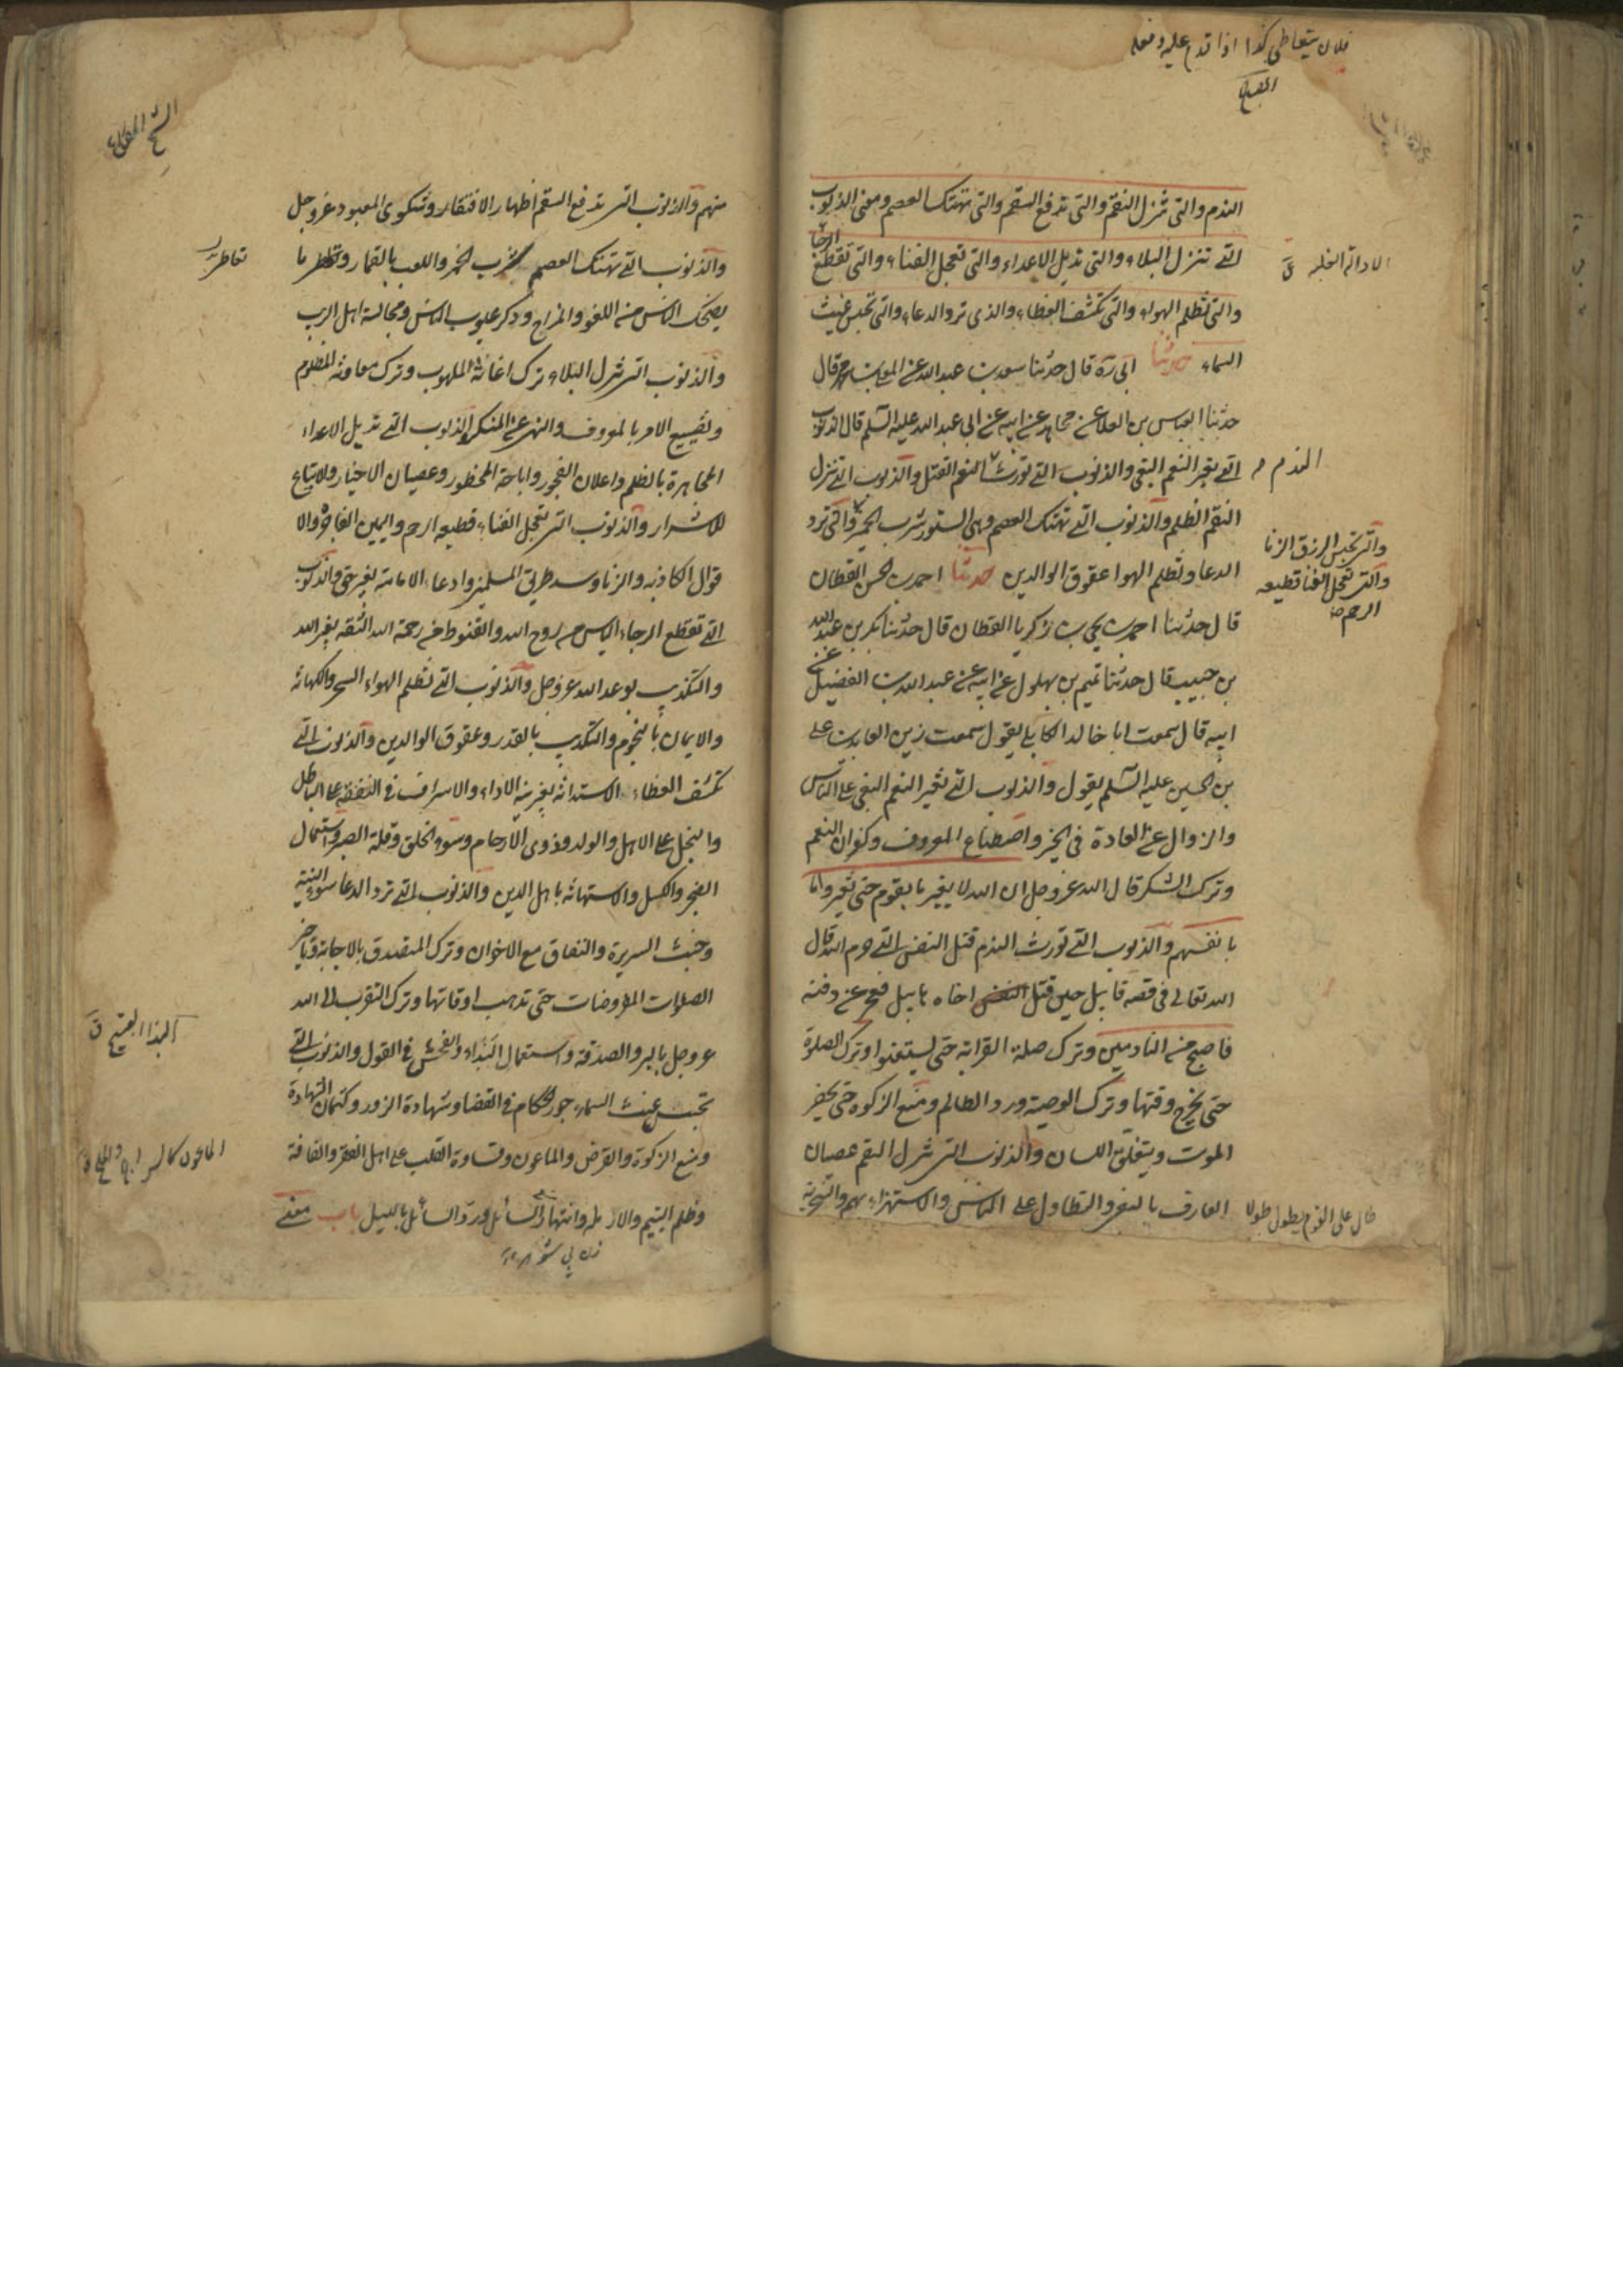 فلان يتعاطى كذا اذا قدم عليه وفعله
المصباح
الندم والتى تنزل النقم والتى تدفع السقم والتى تهتك العصم ومعنى الذنوب
التى تنزل البلاء والتى تديل الاعداء والتى تعجل الفناء والتى تقطع الرجا
الادالة الغلبه ق
والتى تظلم الهواء والتى تكشف الغطاء والذى ترد الدعاء والتى تحبس غيث
السماء حدثنا ابى ره قال حدثنا سعد بن عبد الله عن المعلى بن محمد قال
حدثنا العباس بن العلا عن مجاهد عن ابيه عن ابى عبد الله عليه السلم قال الذنوب
التى تغير النعم البغى والذنوب التى تورث النعم القتل والذنوب التى تنزل
الندم م
النقم الظلم والذنوب التى تهتك العصم وهى الستور شرب الخمر والتى ترد
والتى تحبس الرزق الزنا
والتى تعجل الفنا قطيعه
الرحم صح
الدعا وتظلم الهوا عقوق الوالدين حدثنا احمد بن الحسن القطان
قال حدثنا احمد بن يحيى بن زكريا القطان قال حدثنا بكر بن عبد الله
بن حبيب قال حدثنا تميم بن بهلول عن ابيه عن عبد الله بن الفضيل عن
ابيه قال سمعت ابا خالد الكابلى يقول سمعت زين العابدين على
بن الحسين عليه السلم يقول والذنوب التى تغير النعم البغى على الناس
والزوال عن العادة فى الخير واصطناع المعروف وكفران النعم
وترك الشكر قال الله عز وجل ان الله لا يغير ما بقوم حتى يغيروا ما
بانفسهم والذنوب التى تورث الندم قتل النفس التى حرم الله قال
الله تعالى فى قصه قابيل حين قتل النفس اخاه هابيل فعجز عن دفنه
فاصبح من النادمين وترك صلة القرابه حتى يستغنوا وترك الصلوة
حتى يخرج وقتها وترك الوصية ورد الظالم ومنع الزكوه حتى يحضر
الموت وينغلق اللسان والذنوب التى تنزل النقم عصيان
العارف بالبغى والتطاول على الناس والاستهزاء بهم والسخرية
طال على القوم يطول طولا
منهم والذنوب التى تدفع السقم اظهار الافتقار وشكوى المعبود عز وجل
والذنوب التى تهتك العصم شرب الخمر واللعب بالقمار وتعاطى ما
يضحك الناس من اللغو والمزاح وذكر عيوب الناس ومجالسة اهل الريب
والذنوب التى تنزل البلاء ترك اغاثة الملهوف وترك معاونة المظلوم
وتضييع الامر بالمعروف والنهى عن المنكر والذنوب التى تديل الاعداء
المجاهرة بالظلم واعلان الفجور واباحة المحظور وعصيان الاخيار والاتباع
للاشرار والذنوب التى تعجل الفناء قطيعه الرحم واليمين الفاجرة والا
قوال الكاذبه والزنا وسد طريق المسلمين وادعاء الامامة بغير حق والذنوب
التى تقطع الرجاء الياس من روح الله والقنوط من رحمة الله الثقه بغير الله
والتكذيب بوعد الله عز وجل والذنوب التى تظلم الهواء السحر والكهانه
والايمان بالنجوم والتكذيب بالقدر وعقوق الوالدين والذنوب التى
تكشف الغطاء الاستدانه بغير نيه الاداء والاسراف فى النفقه على الباطل
والبخل على الاهل والولد وذوى الارحام وسوء الخلق وقلة الصبر واستعمال
الضجر والكسل والاستهانه باهل الدين والذنوب التى ترد الدعا سوء النية
وخبث السريرة والنفاق مع الاخوان وترك التصدق بالاجابة وتاخير
الصلوات المفروضات حتى تذهب اوقاتها وترك التقرب الى الله
عز وجل بالبر والصدقة واستعمال البذاء والفحش فى القول والذنوب التى
تحبس غيث السماء جور الحكام فى القضا وشهادة الزور وكتمان الشهادة
ومنع الزكوة والقرض والماعون وقساوة القلب على اهل الفقر والفاقة
وظلم اليتيم والارمله وانتهار السائل ورد السائل بالليل باب معنى
زن بى شوهر